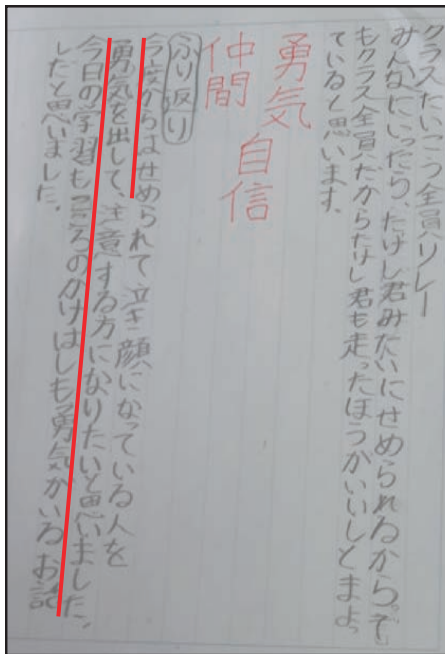 クラスたいこう全員リレー
みんなにいったら、たけし君みたいにせめられるから。で
もクラス全員だからたけし君も走ったほうがいいしとまよっ
ていると思います。
勇気
自信
仲間
ふり返り
今度からはせめられて泣き顔になっている人を
勇気を出して、注意する方になりたいと思いました。
今日の学習もこころのかけはしも勇気がいるお話
したと思いました。